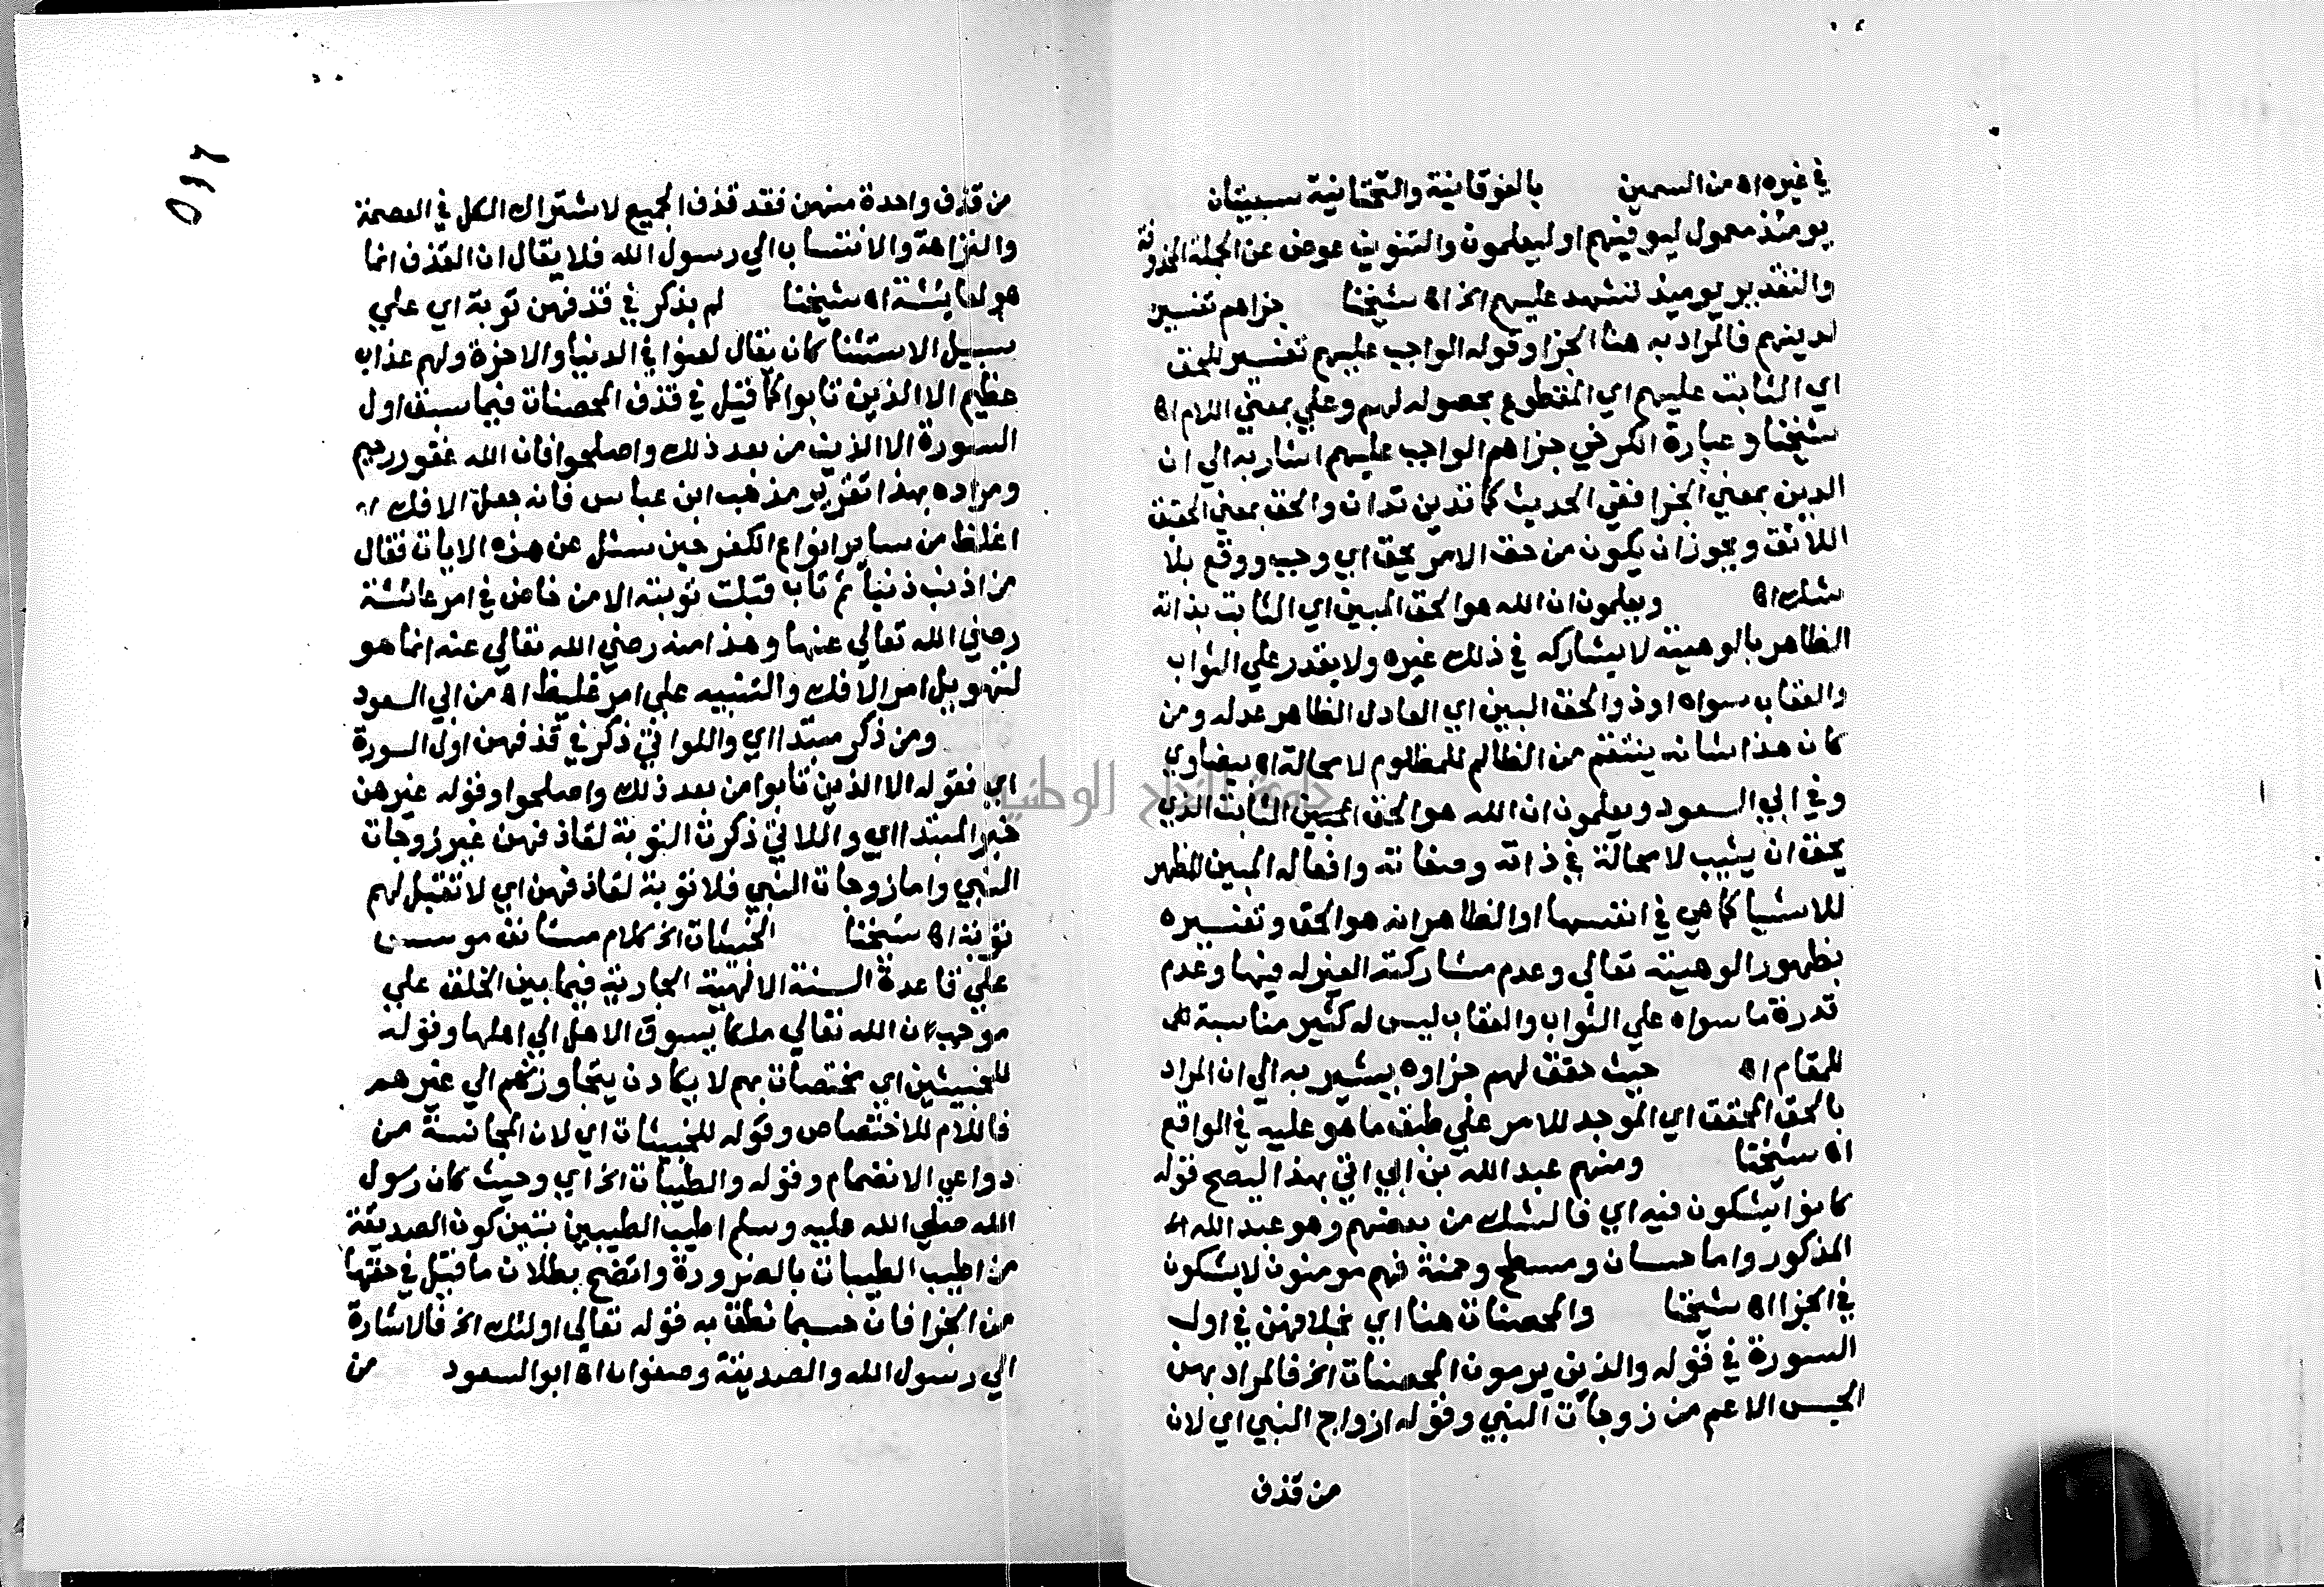 في غيره اه من السمين بالفوقانية والتحتانية سبعيتان
يومئذ معمول ليوفيهم او ليعلمون والتنوين عوض عن الجملة المحذوفة
والتقدير يوميذ تشهد عليهم الخ اه شيخنا جزاهم تفسير
لدينهم فالمراد به هنا الجزا وقوله الواجب عليهم تفسير للحق
اي الثابت عليهم اي المقطوع بحصوله لهم وعلي بمعني اللام اه
شيخنا وعبارة الكرخي جزاهم الواجب عليهم اشار به الي ان
الدين بمعني الجزا ففي الحديث كما تدين تدان والحق بمعني الحقيق
اللائق ويجوز ان يكون من حق الامر يحق اي وجب ووقع بلا
شك اه ويعلمون ان الله هو الحق المبين اي الثابت بذاته
الظاهر بالوهيته لا يشاركه في ذلك غيره ولا يقدر علي الثواب
والعقاب سواه او ذو الحق البين اي العادل الظاهر عدله ومن
كان هذا شانه ينتقم من الظالم للمظلوم لا محالة اه بيضاوي
وفي ابي السعود ويعلمون ان الله هو الحق المبين الثابت الذي
يحق ان يثبت لا محالة في ذاته وصفاته وافعاله المبين المظهر
للاشيا كما هي في انفسها او الظاهر انه هو الحق وتفسيره
بظهور الوهيته تعالي وعدم مشاركة الغير له فيها وعدم
قدرة ما سواه علي الثواب والعقاب ليس له كثير مناسبة
للمقام اه حيث حقق لهم جزاوه يشير به الي ان المراد
بالحق المحقق اي الموجد للامر علي طبق ما هو عليه في الواقع
اه شيخنا ومنهم عبد الله بن ابي اتي بهذا ليصح قوله
كانوا يشكون فيه اي فالشك من بعضهم وهو عبد الله
المذكور واما حسان ومسطح وحمنة فهم مومنون لا يشكون
في الجزا اه شيخنا والمحصنات هنا اي بخلافهن في اول
السورة في قوله والذين يرمون المحصنات الخ فالمراد بهن
الجنس الاعم من زوجات النبي وقوله ازواج النبي اي لان
من قذف
من قذف واحدة منهن فقد قذف الجميع لاشتراك الكل في العصمة
والنزاهة والانتساب الي رسول الله فلا يقال ان القذف انما
هو لعايشة اه شيخنا لم يذكر في قذفهن توبة اي علي
سبيل الاستثنا كان يقال لعنوا في الدنيا والاخرة ولهم عذاب
عظيم الا الذين تابوا كما قيل في قذف المحصنات فيما سبق اول
السورة الا الذين من بعد ذلك واصلحوا فان الله غفور رحيم
ومراده بهذا تقرير مذهب ابن عباس فانه جعل الافك
اغلظ من ساير انواع الكفر حين سئل عن هذه الايات فقال
من اذنب ذنبا ثم تاب قبلت توبته الا من خاض في امر عائشة
رضي الله تعالي عنها وهذا منه رضي الله تعالي عنه انما هو
لتهويل امر الافك والتنبيه علي امر غليظ اه من ابي السعود
ومن ذكر مبتدا اي واللواتي ذكر في قذفهن اول السورة
اي فقوله الا الذين تابوا من بعد ذلك واصلحوا وقوله غيرهن
خبر المبتدا اي واللاتي ذكرت التوبة لقاذفهن غير زوجات
النبي واما زوجات النبي فلا توبة لقاذفهن اي لا تقبل لهم
توبة اه شيخنا الخبيثات الخ كلام مستانف موسس
علي قاعدة السنة الالهية الجارية فيما بين الخلق علي
موجب ان الله تعالي ملكا يسوق الاهل الي اهلها وقوله
للخبيثين اي مختصات بهم لا يكادن يتجاوزنهم الي غيرهم
فاللام للاختصاص وقوله للخبيثات اي لان المجانسة من
دواعي الانضمام وقوله والطيبات الخ اي وحيث كان رسول
الله صلي الله عليه وسلم اطيب الطيبين تبين كون الصديقة
من اطيب الطيبات بالضرورة واتضح بطلان ما قيل في حقها
من الخرافات حسبما نطق به قوله تعالي اولئك الخ فالاشارة
الي رسول الله والصديقة وصفوان اه ابو السعود من
جامعة النجاح الوطنية